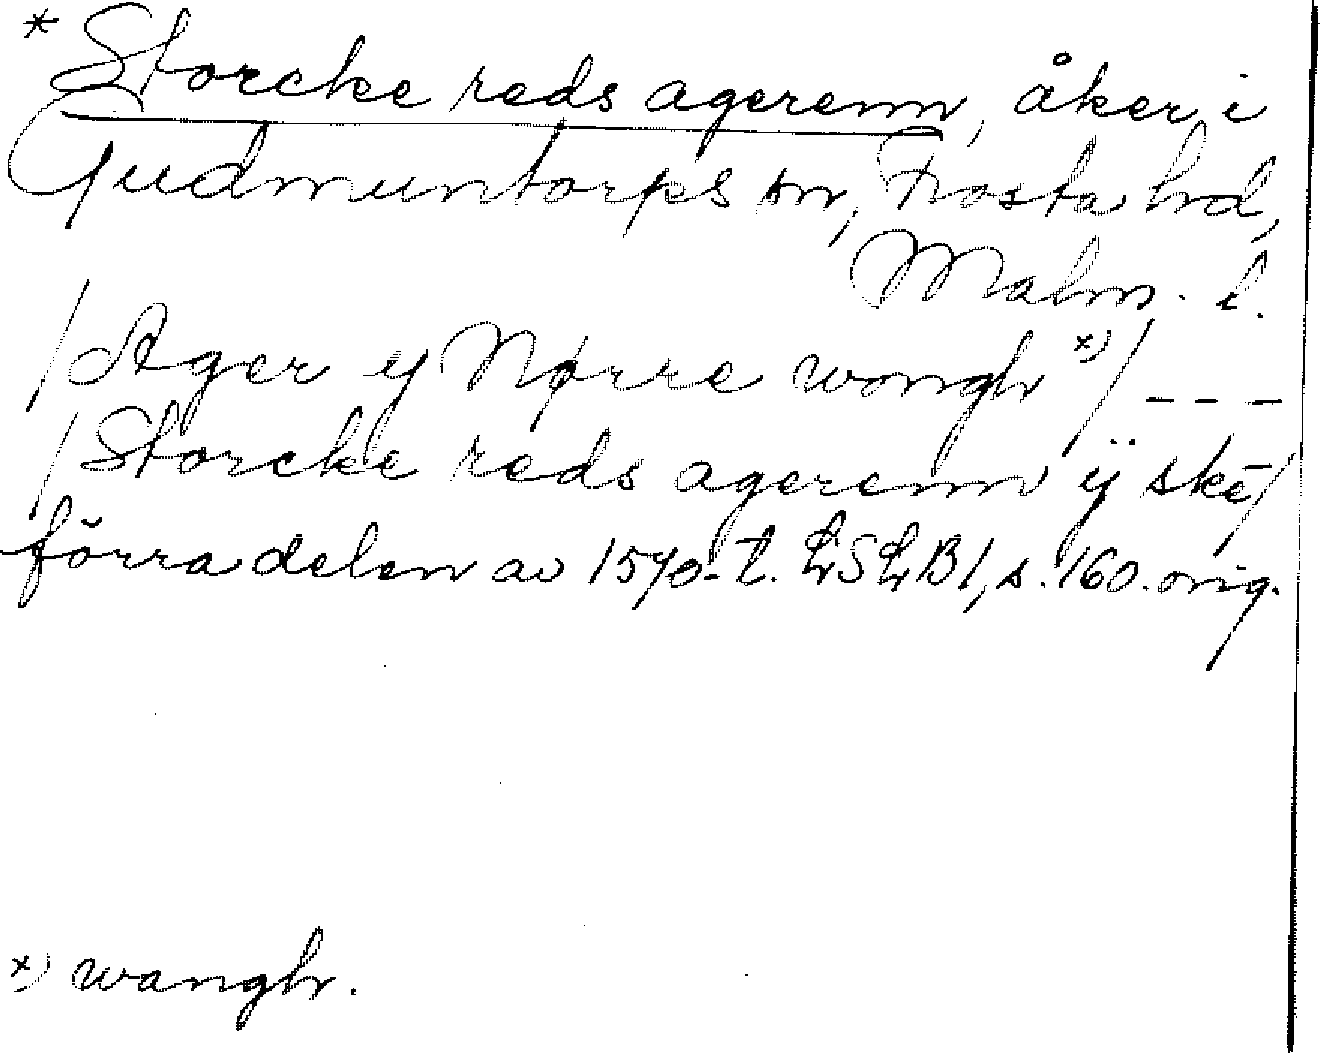 * Storcke reds agerenn, åker i
Gudmuntorps sn, Frosta hd,
Malm. l.
/Ager y Nørre wongh x)/ ---
/Storcke reds agerenn ÿ skē/
förra delen av 1570-t. LSLB1, s. 160. orig.
x) wangh.